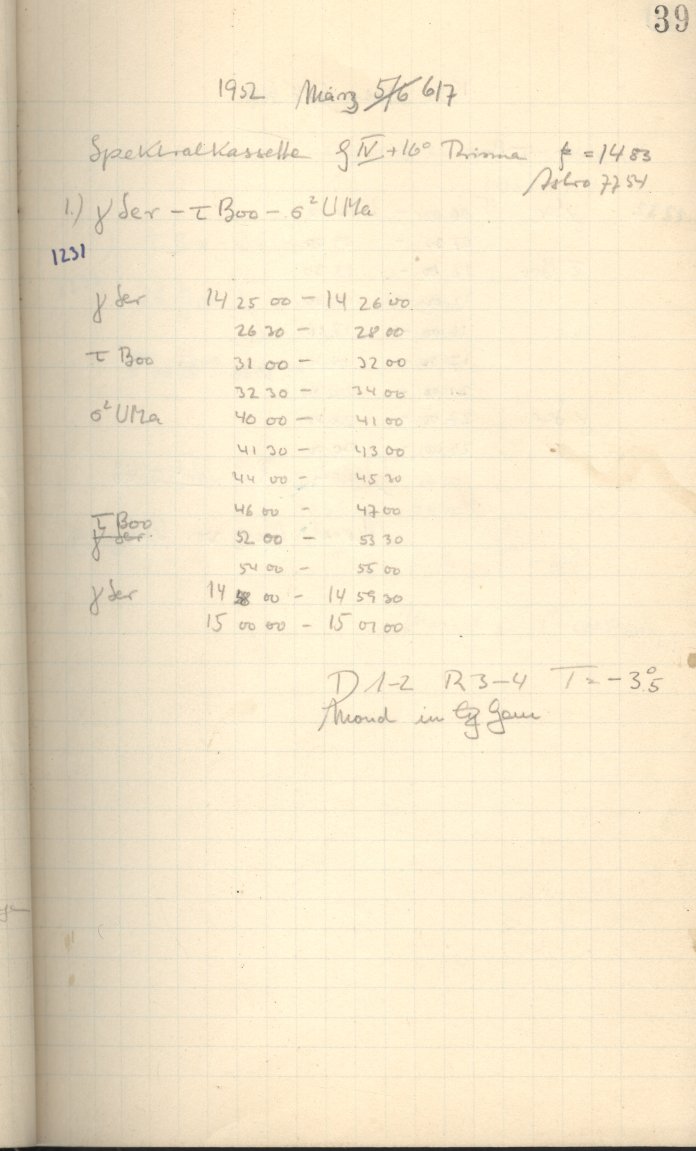 39
1952 März 5/6 6/7
Spektralkassette IV +16° Prisma f = 1483
Astro 7754
1.) γ Ser – τ Boo – σ² UMa
1231
γ Ser 14 25 00 – 14 26 00
26 30 – 28 00
τ Boo 31 00 – 32 00
32 30 – 34 00
σ² UMa 40 00 – 41 00
41 30 – 43 00
44 00 – 45 30
46 00 – 47 00
τ Boo
γ Ser 52 00 – 53 30
54 00 – 55 00
γ Ser 14 58 00 – 14 59 30
15 00 00 – 15 01 00
D 1–2 R 3–4 T = –3°5
Mond in Gem